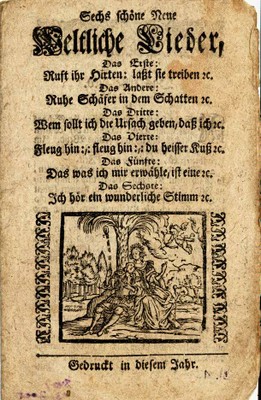 Sechs schöne Neue
Weltliche Lieder,
Das Erste:
Ruft ihr Hirten: laßt sie treiben ꝛc.
Das Andere:
Ruhe Schäfer in dem Schatten ꝛc.
Das Dritte:
Wem sollt ich die Ursach geben, daß ich ꝛc.
Das Vierte:
Fleug hin :,: fleug hin :,: du heisser Kuß ꝛc.
Das Fünfte:
Das was ich mir erwähle, ist eine ꝛc.
Das Sechste:
Ich hör ein wunderliche Stimm ꝛc.
Gedruckt in diesem Jahr.